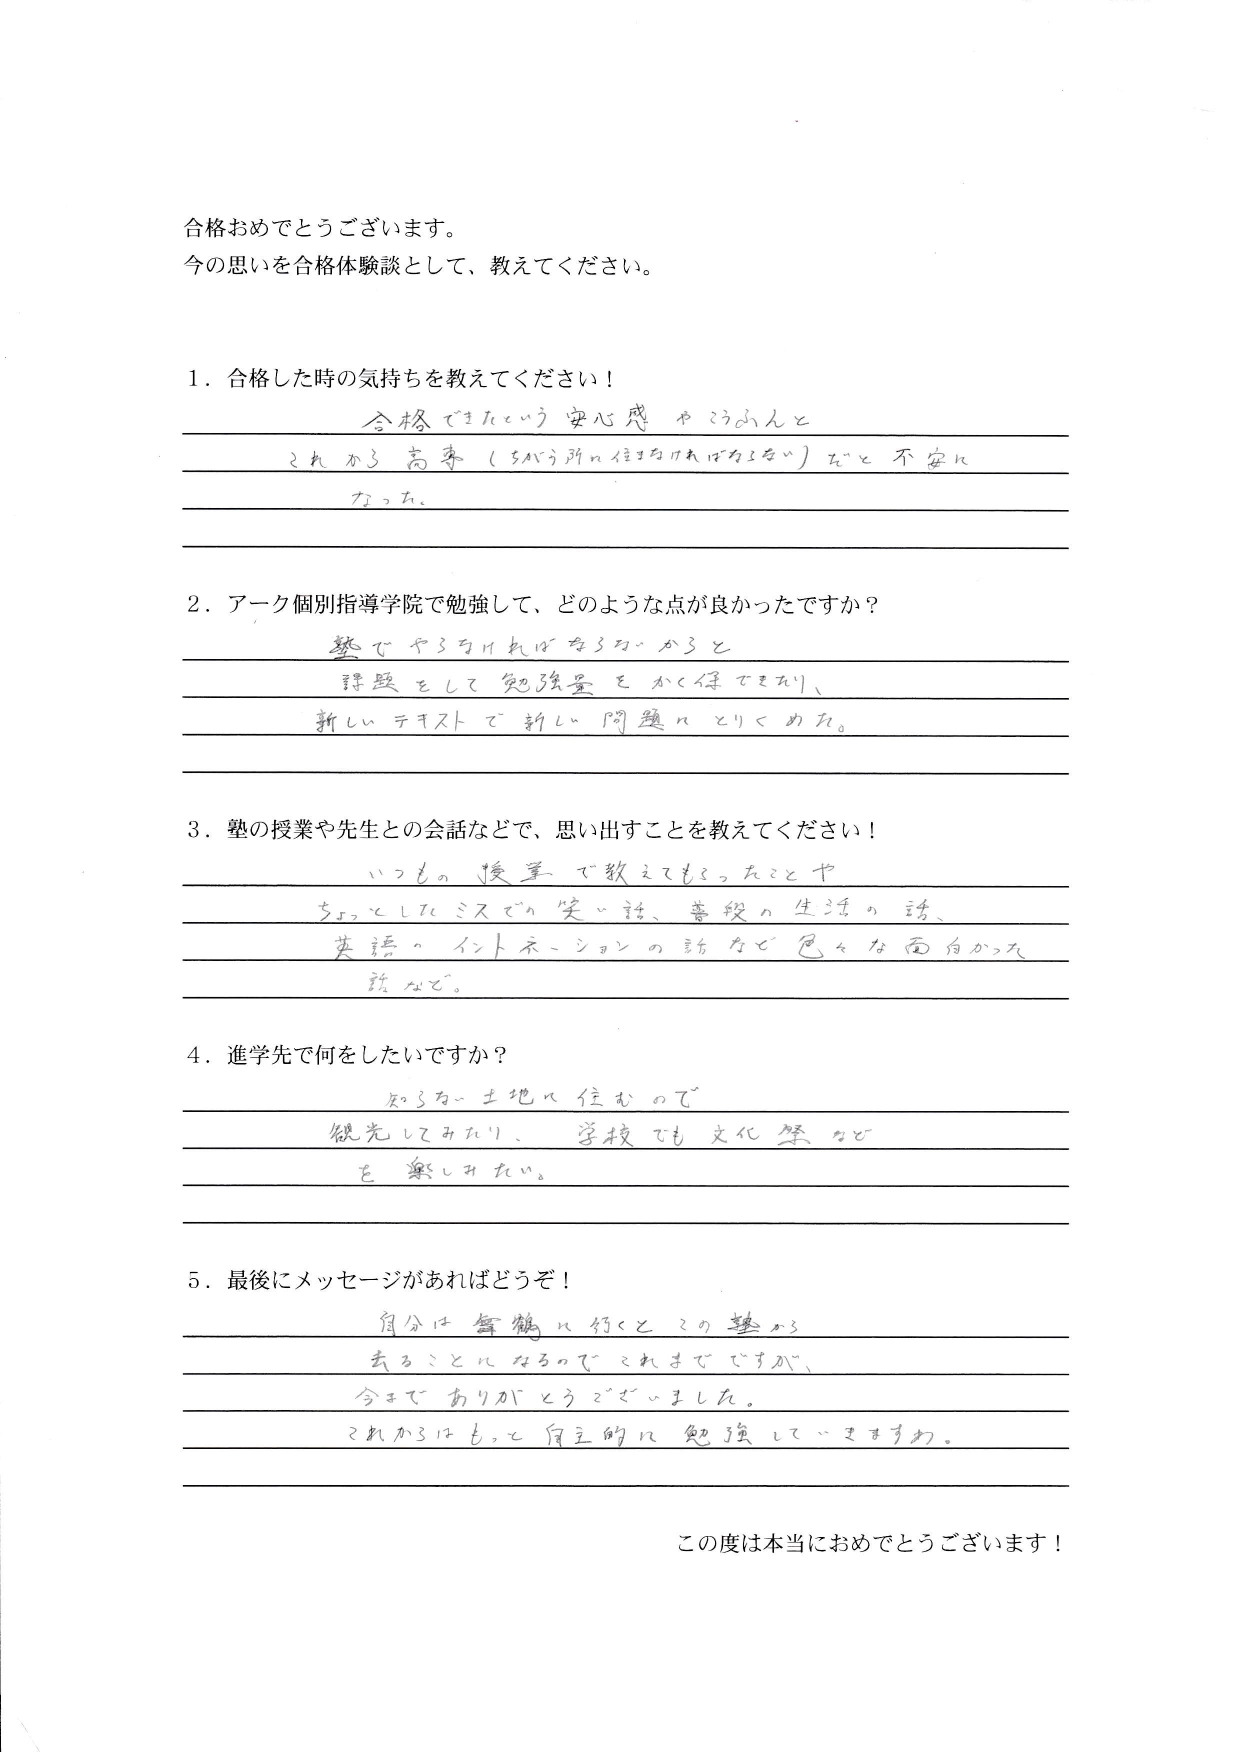 合格おめでとうございます。
今の思いを合格体験談として、教えてください。
１．合格した時の気持ちを教えてください！
合格できたという安心感やこうふんと
これから高専（ちがう所に住まなければならない）だと不安に
なった。
２．アーク個別指導学院で勉強して、どのような点が良かったですか？
塾でやらなければならないからと
課題をして勉強量をかく保できたり、
新しいテキストで新しい問題にとりくめた。
３．塾の授業や先生との会話などで、思い出すことを教えてください！
いつもの授業で教えてもらったことや
ちょっとしたミスでの笑い話、普段の生活の話、
英語のイントネーションの話など色々な面白かった
話など。
４．進学先で何をしたいですか？
知らない土地に住むので
観光してみたり、学校でも文化祭など
を楽しみたい。
５．最後にメッセージがあればどうぞ！
自分は舞鶴に行くとこの塾から
去ることになるのでこれまでですが、
今までありがとうございました。
これからはもっと自主的に勉強していきますわ。
この度は本当におめでとうございます！